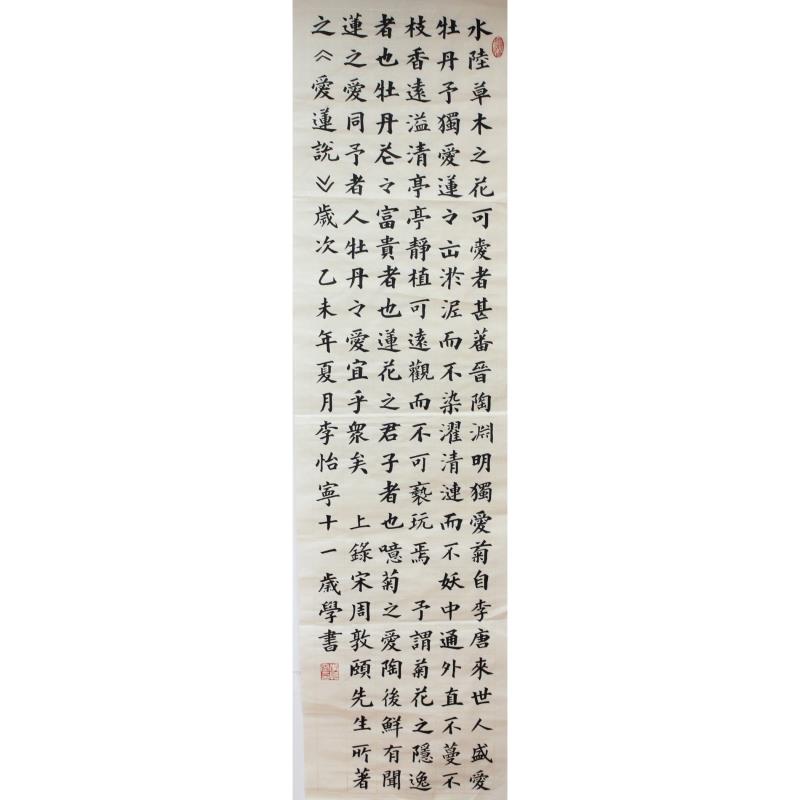 水陸草木之花可愛者甚蕃晉陶淵明獨愛菊自李唐來世人盛愛
牡丹予獨愛蓮々出淤泥而不染濯清漣而不妖中通外直不蔓不
枝香遠溢清亭亭靜植可遠觀而不可褻玩焉 予謂菊花之隱逸
者也牡丹花々富貴者也蓮花之君子者也噫菊之愛陶後鮮有聞
蓮之愛同予者人牡丹之愛宜乎眾矣 上錄宋周敦頤先生所著
之《愛蓮說》歲次乙未年夏月李怡寧十一歲學書